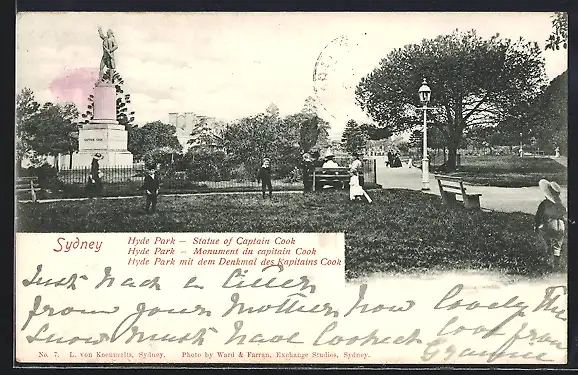 CAPTAIN COOK
Sydney
Hyde Park – Statue of Captain Cook
Hyde Park – Monument du capitain Cook
Hyde Park mit dem Denkmal des Kapitains Cook
Just had a letter
from your Mother How lovely The
Snow must have looked love from
Grannie
No. 7. L. von Koennerits, Sydney. Photo by Ward & Farran, Exchange Studios, Sydney.